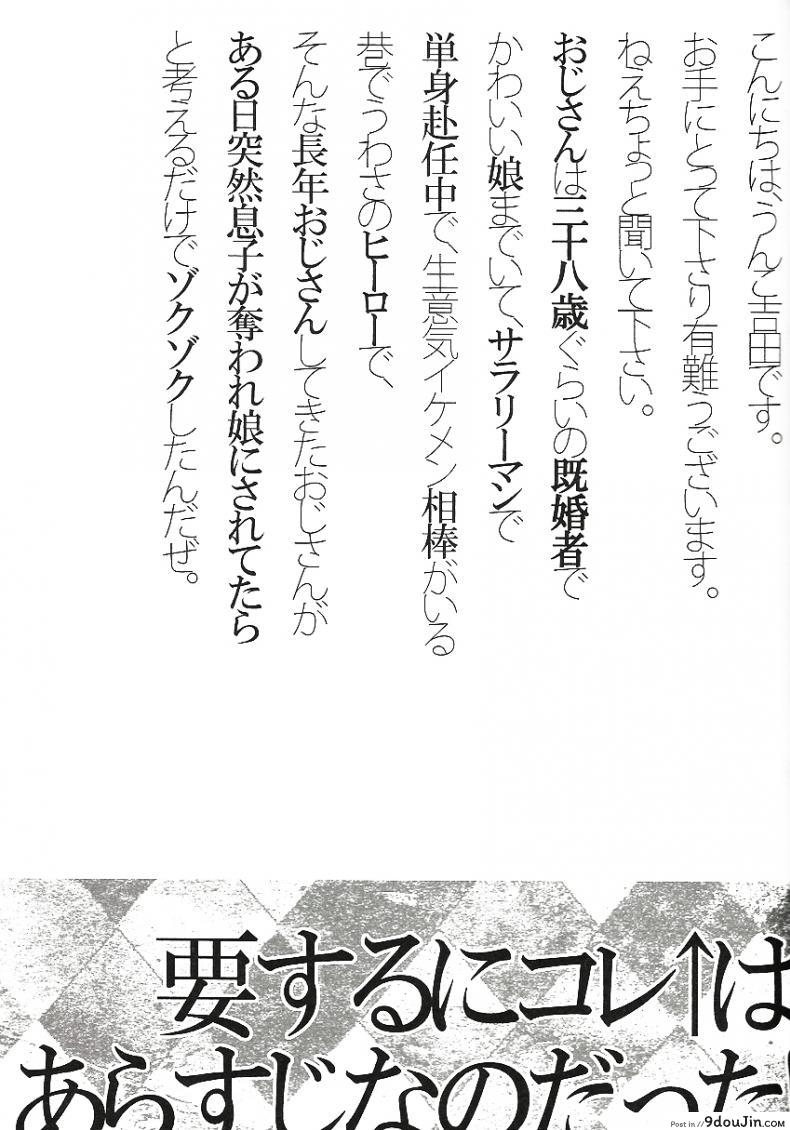 こんにちは、うんこ吉田です。
お手にとって下さり有難うございます。
ねえちょっと聞いて下さい。
おじさんは三十八歳ぐらいの既婚者で
かわいい娘までいて、サラリーマンで
単身赴任中で、生意気イケメン相棒がいる
巷でうわさのヒーローで、
そんな長年おじさんしてきたおじさんが
ある日突然息子が奪われ娘にされてたら
と考えるだけでゾクゾクしたんだぜ。
要するにコレ↑は
あらすじなのだった!
Post in // 9douJin.com